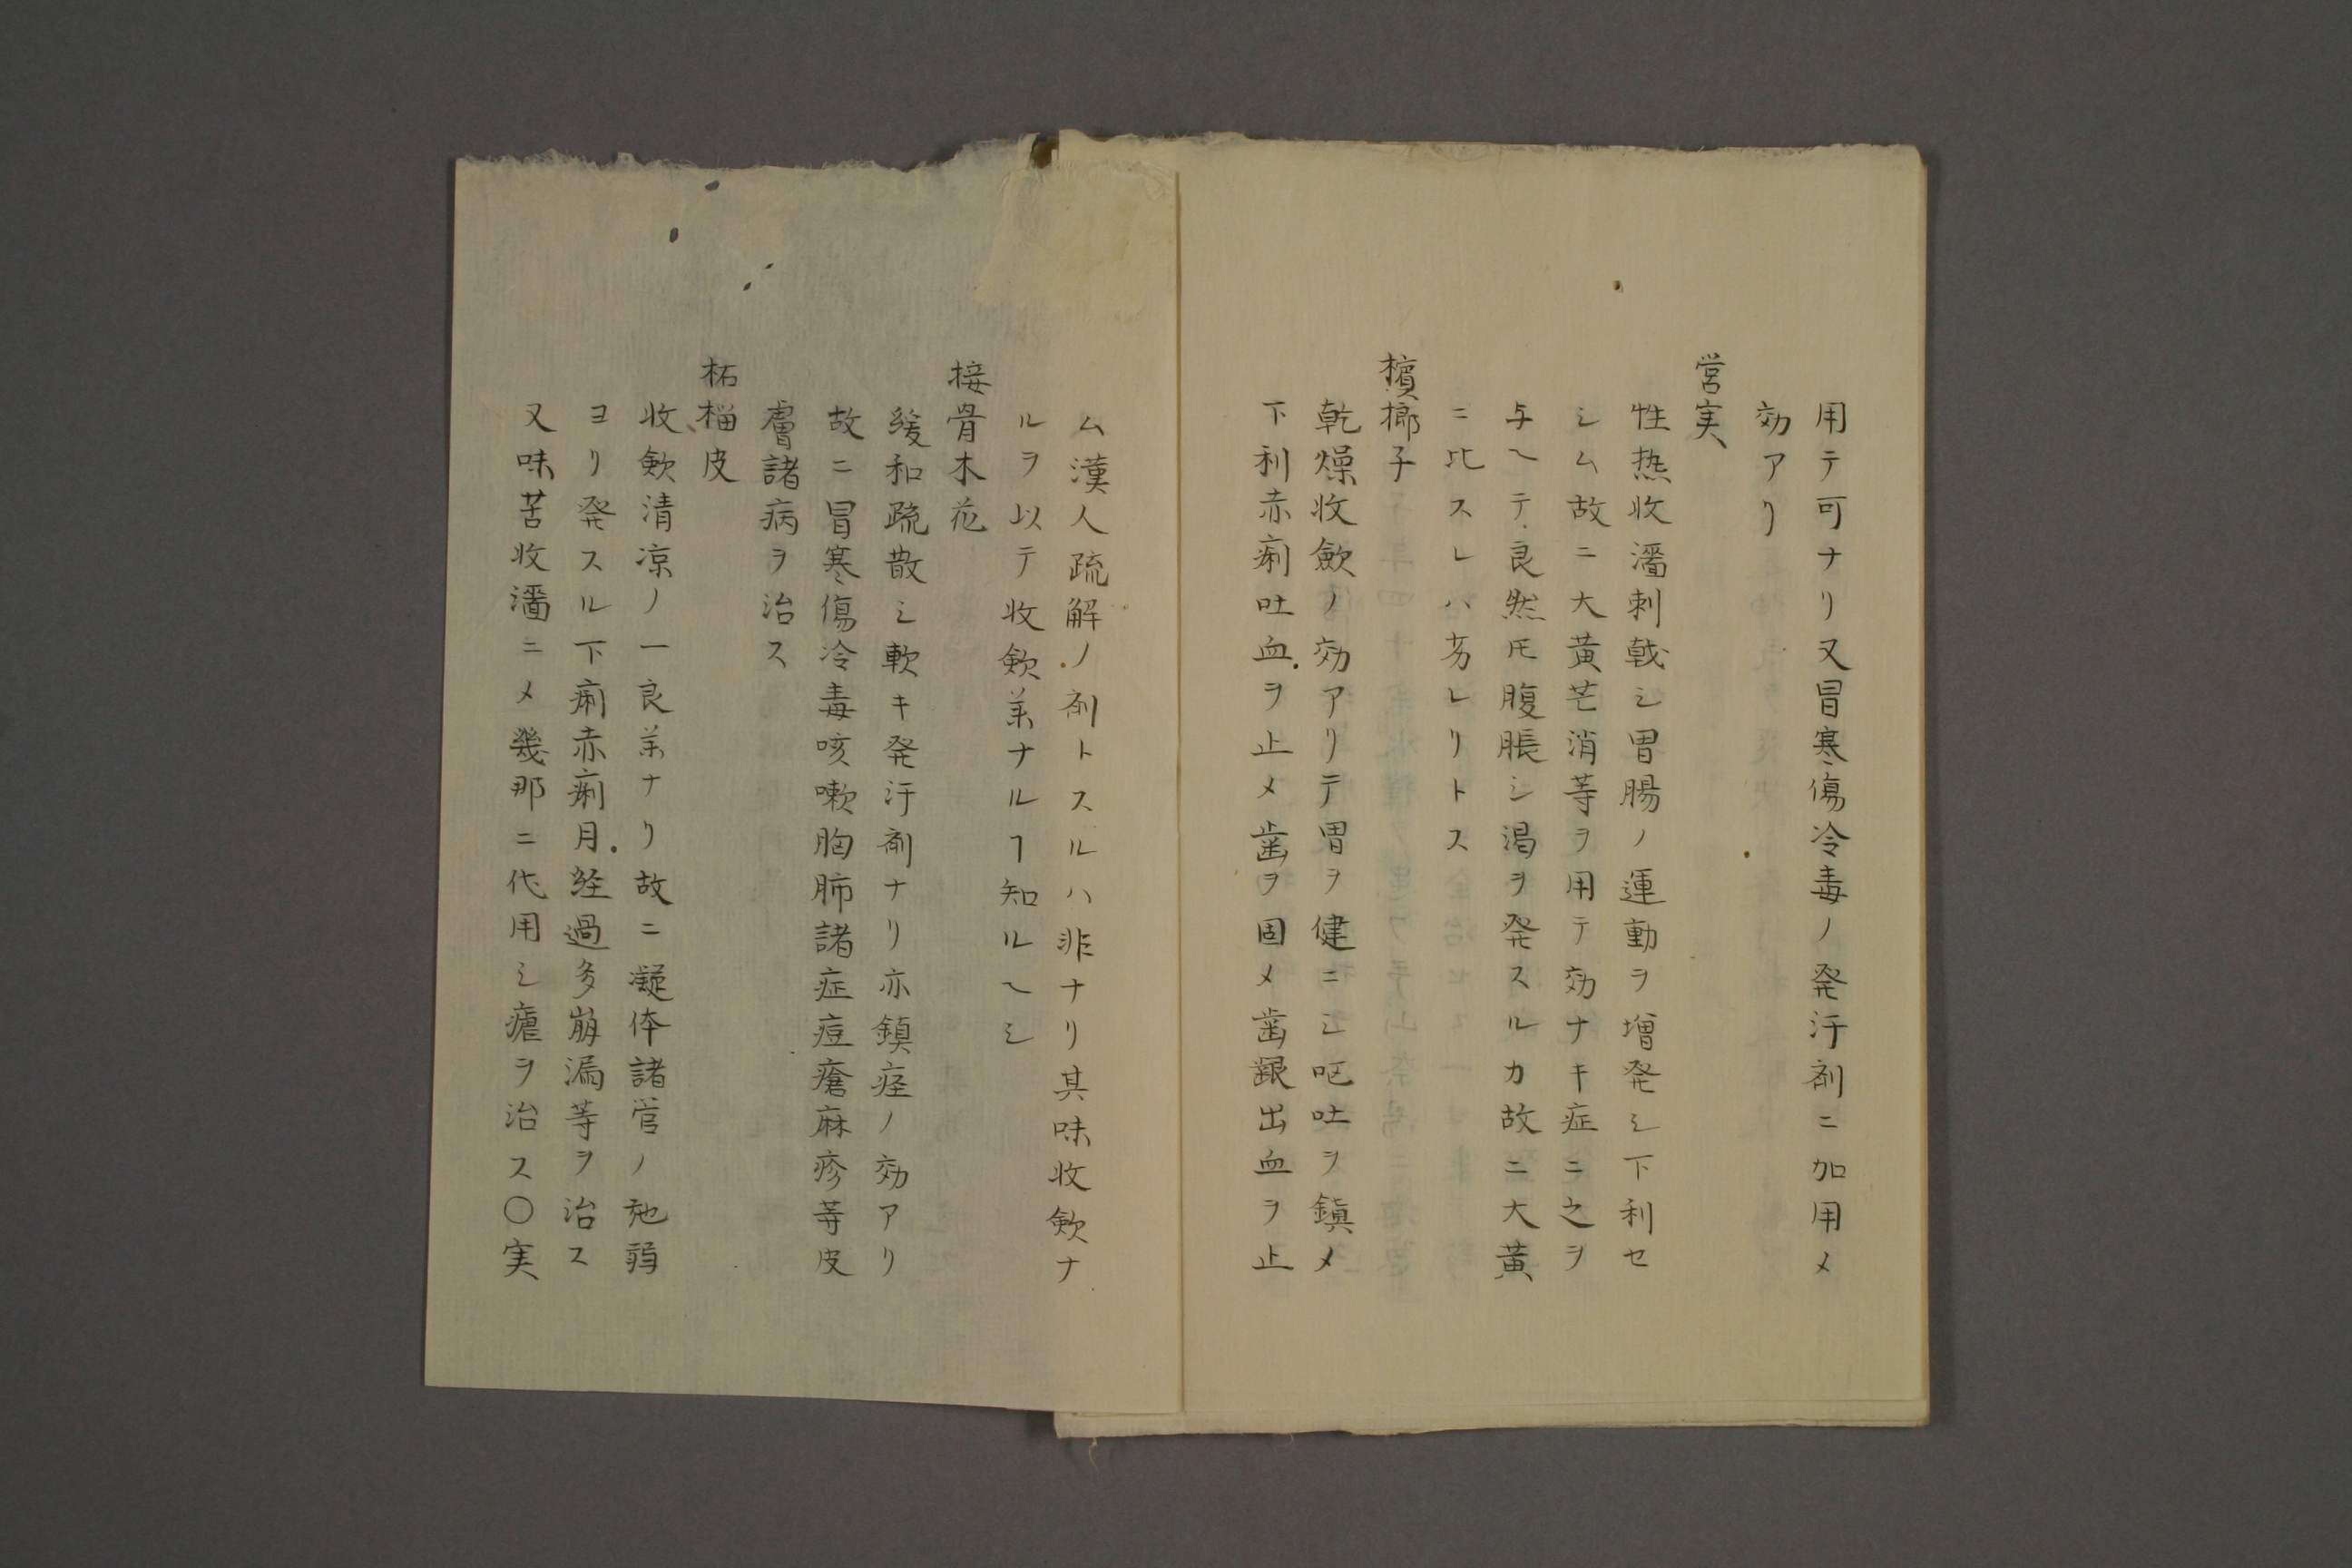 用テ可ナリ又冒寒傷冷毒ノ発汗剤ニ加用メ
効アリ
営実
性热收濇刺戟シ胃腸ノ運動ヲ増発シ下利セ
シム故ニ大黄芒消等ヲ用テ効ナキ症ニ之ヲ
与ヘテ良然𪜈腹脹シ渇ヲ発スルカ故ニ大黄
ニ比スレハ劣レリトス
檳榔子
乾燥收歛ノ効アリテ胃ヲ健ニシ呕吐ヲ鎮メ
下利赤痢吐血ヲ止メ歯ヲ固メ歯齦出血ヲ止
ム漢人疏解ノ剤トスルハ非ナリ其味收歛ナ
ルヲ以テ收歛薬ナルヿ知ルヘシ
接骨木花
緩和疏散シ軟キ発汗剤ナリ亦鎮痙ノ効アリ
故ニ冒寒傷冷毒咳嗽胸肺諸症痘瘡麻疹等皮
膚諸病ヲ治ス
柘榴皮
收歛清凉ノ一良薬ナリ故ニ凝体諸管ノ弛弱
ヨリ発スル下痢赤痢月経過多崩漏等ヲ治ス
又味苦收濇ニメ幾那ニ代用シ瘧ヲ治ス〇実